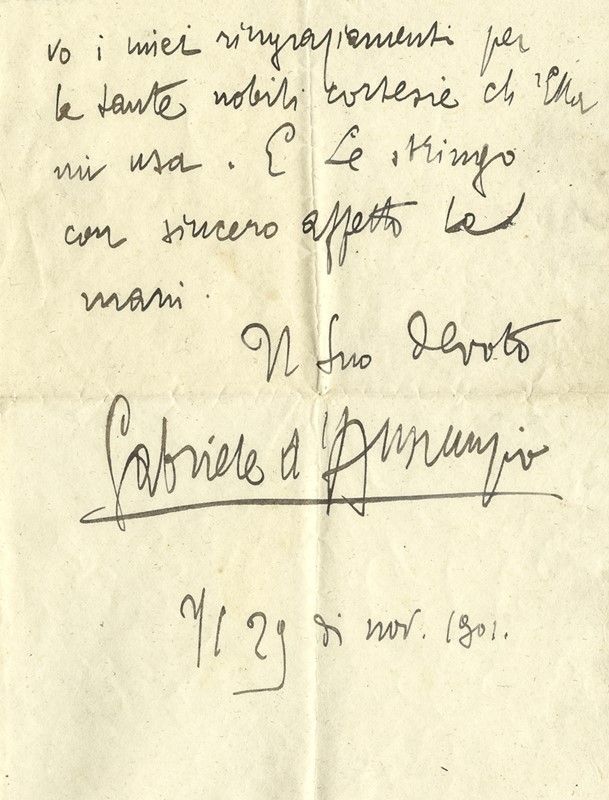 vo i miei ringraziamenti per
le tante nobili cortesie ch'Ella
mi usa. E Le stringo
con sincero affetto le
mani.
Il Suo devoto
Gabriele d'Annunzio
Il 29 di nov. 1901.